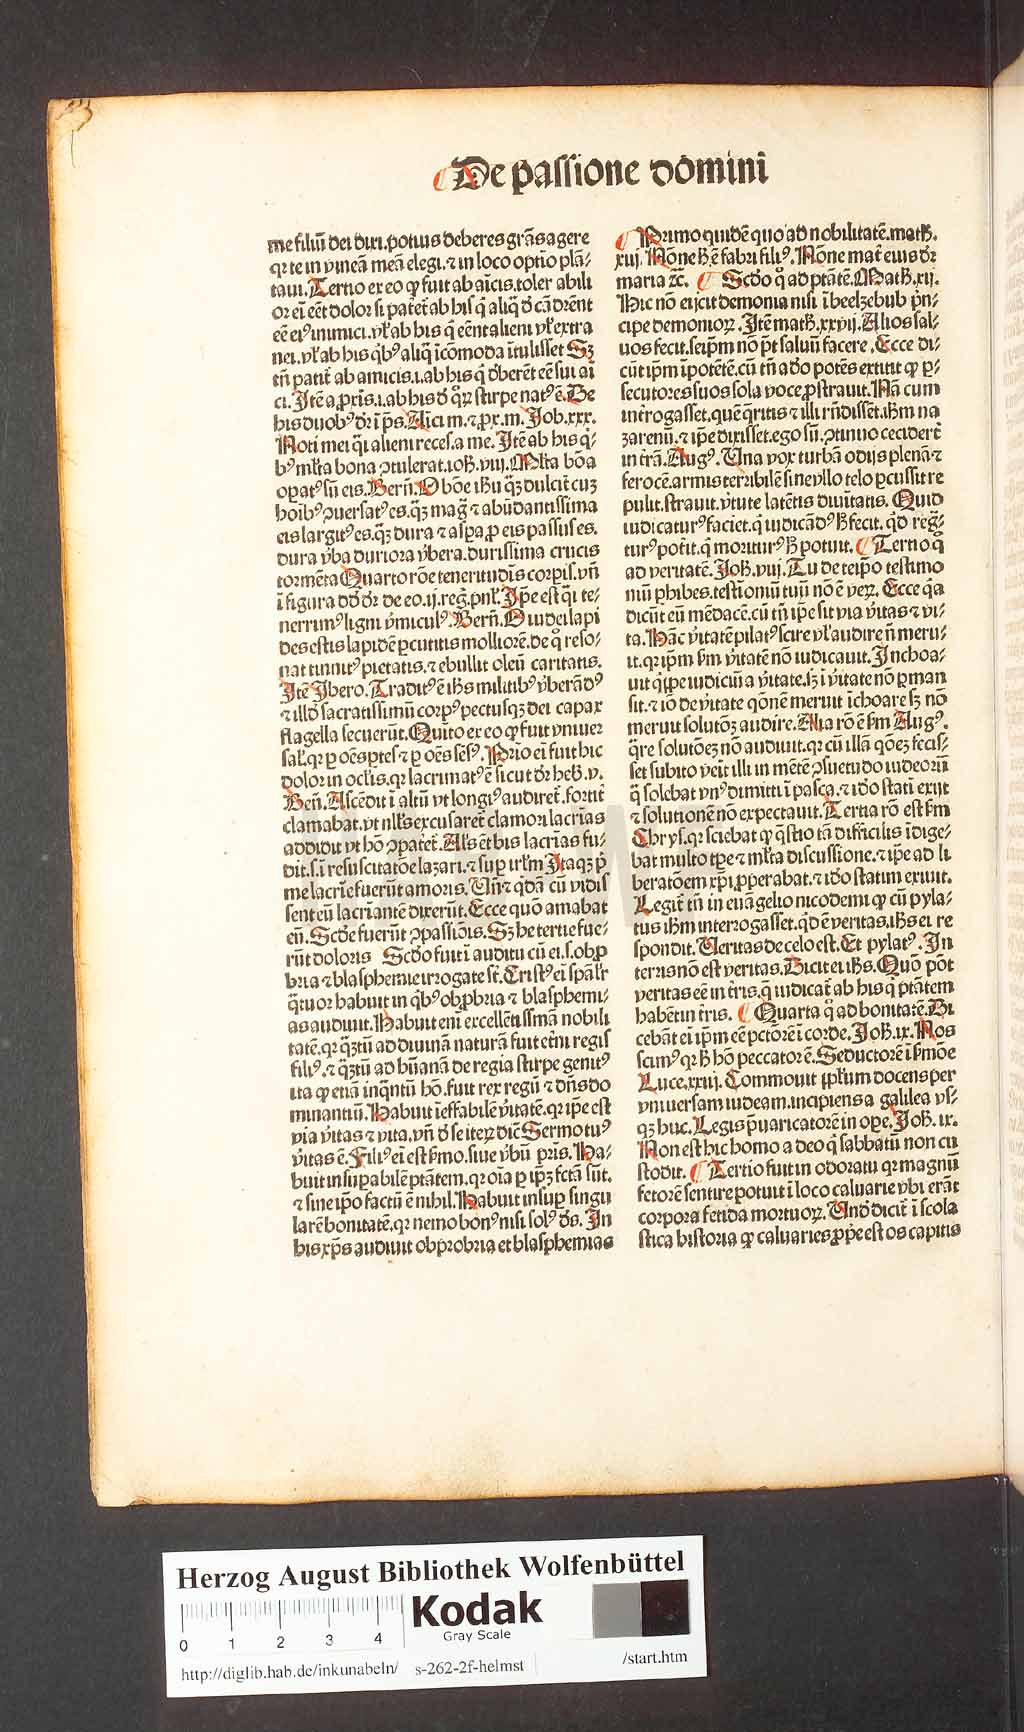 De passione domini
me filiū dei dixi. potius deberes grās agere
qr te in vineā meā elegi. ⁊ in loco optīo plā-
taui. Tertio ex eo ꝙ fuit ab aīcis. toler abili
or eī eēt dolor si patēt̄ ab his q̄ aliq̄ d̄ cā drēnt
eē eiꝰ inimici. vl̓ ab his q̄ eēnt alieni vl̓ extra
nei. vl̓ ab his qͥbꝰ aliq̄ īcōmoda ītulisset Sꝫ
tn̄ patit̄ ab amicis. i. ab his q̄ d̓berēt eē sui ai
ci. Itē a ꝓxīs. i. ab his d̓ qͦꝝ stirpe natꝰ ē. De
his duobꝰ dr̄ ī ps̄. Aīci m. ⁊ ꝓx. m. Job. xxx.
Noti mei qͣi alieni recess̄. a me. Itē ab his qͥ-
bꝰ ml̓ta bona ꝯtulerat. ioh̄. viij. Ml̓ta bōa
opatꝰ sū eis. Bern̄. O bōe ihū qͣꝫ dulcit̄ cuꝫ
hoībꝰ ꝯuersatꝰ es. qͣꝫ maḡ ⁊ abūdantissima
eis largitꝰ es. qͣꝫ dura ⁊ asꝑa ꝓ eis passus es.
dura v̓ba duriora v̓bera. durissima crucis
tormēta Quarto rōe teneritudīs corpīs. vn̄
ī figura dd̄ dr̄ de eo. ij. reḡ. pnl̓. Ipe est qͣi te-
nerrimꝰ ligni v̓miculꝰ. Bern̄. O iudei lapi
des estis lapidē ꝑcutitis molliorē. de qͦ reso-
nat tinnitꝰ pietatis. ⁊ ebullit oleū caritatis.
Itē Jhero. Traditꝰ ē ihs̄ militibꝰ v̓berādꝰ
⁊ illd̓ sacratissimū corpꝰ pectusqꝫ dei capax
flagella secuerūt. Quīto ex eo ꝙ fuit vniuer
sal̓. qr ꝑ oēs ꝑtes ⁊ ꝑ oēs sēsꝰ. Prīo eī fuit hic
dolor in oclīs. qr lacrimatꝰ ē sicut dr̄ heb̄. v.
Ben̄. Ascēdit ī altū vt longiꝰ audiret̄. fortit̄
clamabat. vt nll̓s excusaret̄ clamori lacrīas
addidit vt hō ꝯpatēt̄. Al̓s ēt bis lacrīas fu-
dit. s. ī resuscitatōe lazari. ⁊ suꝑ irl̓m Itaqꝫ p̄
me lacrīe fuerūt amoris. Vn̄ ⁊ qͥdā cū vidis
sent eū lacrīantē dixerūt. Ecce quō amabat
eū. Scd̓e fuerūt ꝯpassiōis. Sꝫ he tertie fue-
rūt doloris Scd̓o fuit ī auditu cū ei. s. obꝓ
bria ⁊ blasphemie irrogate st̄. Cristꝰ eī spāl̓r
qͣtuor habuit in qͥbꝰ obꝓbria ⁊ blasphemi-
as audiuit. Habuit enī excellētissimā nobili
tatē. qr qͣꝫtū ad diuinā naturā fuit et̄ni regis
filiꝰ. ⁊ qͣꝫtū ad hūanā de regia stirpe genitꝰ
ita ꝙ etiā inqͣntū hō. fuit rex regū ⁊ dn̄s do
minantiū. Habuit īeffabilē v̓itatē. qr ipe est
via v̓itas ⁊ vita. vn̄ d̓ se iteꝝ dic̄ Sermo tuꝰ
v̓itas ē. Filiꝰ eī est f̓mo. siue v̓bū pr̄is. Ha-
buit insuꝑabilē ptātem. qr oīa ꝑ ip̄ꝫ fc̄tā sūt.
⁊ sine ip̄o factū ē nihil. Habuit insuꝑ singu
larē bonitatē. qr nemo bonꝰ nisi solꝰ ds̄. In
his xp̄s audiuit obprobria et blasphemias
Primo quidē quoꝰ ad nobilitatē. math̄.
xiij. Nōne h̓ ē fabri filiꝰ. Nōne mat̄ eius dr̄
maria ⁊c̄. Scd̓o qͦ ad ptātē. Math̄. xij.
Hic nō eijcit demonia nisi ī beelzebub pͥn-
cipe demonioꝝ. Itē math̄. xxvij. Alios sal-
uos fecit. seip̄m nō pt̄ saluū facere. Ecce di-
cūt ip̄m ipotētē. cū tn̄ adō potēs extitit ꝙ ꝑ-
secutores suos sola voce ꝓstrauit. Nā cum
int̓rogasset. quē qͥritis ⁊ illi rn̄dissēt. ihm̄ na
zarenū. ⁊ ip̄e dixisset. ego sū. ꝯtinuo cecidert̄
in tr̄ā. Augꝰ. Una vox turbā odijs plenā ⁊
ferocē. armis terribilē sine vllo telo ꝑcussit re
pulit. strauit. v̓tute latētis diuītatis. Quid
iudicaturꝰ faciet. q̄ iudicādꝰ h̓ fecit. qͥd reḡ-
turꝰ pot̓it. q̄ moriturꝰ h̓ potuit. Tertio qͦ
ad veritatē. Joh̄. viij. Tu de teip̄o testimo
niū ꝑhibes. testīoniū tuū nō ē veꝝ. Ecce qͣa
dicūt eū mēdacē. cū tn̄ ip̄e sit via v̓itas ⁊ vi-
ta. Hāc v̓itatē pilatꝰ scire vl̓ audire n̄ meru-
it. qr ip̄m f̓m v̓itatē nō iudicauit. Inchoa-
uit qͥppe iudiciū a v̓itate. sꝫ ī v̓itate nō ꝑman
sit. ⁊ iō de v̓itate qōnē meruit īchoare sꝫ nō
meruit solutōꝫ audire. Alia rō ē f̓m Augꝰ.
qͣre solutōeꝫ nō audiuit. qr cū illā qōeꝫ fecis-
set subito veīt illi in mētē ꝯsuetudo iudeorū
q̄ solebat vnꝰ dimitti ī pasca. ⁊ idō statī exijt
⁊ solutionē nō expectauit. Tertia rō est f̓m
Chrys. qr sciebat ꝙ q̄stio tā difficilis īdige-
bat multo tꝑe ⁊ ml̓ta discussione. ⁊ ip̄e ad li
beratōem xp̄i ꝓperabat. ⁊ idō statim exiuit.
Legit̄ tn̄ in euāgelio nicodemi ꝙ cū pyla-
tus ihm̄ interrogasset. qͥd ē veritas. ihs̄ ei re
spondit. Veritas de celo est. Et pylatꝰ. In
terris nō est veritas. Dicit ei ihs̄. Quō pōt
veritas eē in tr̄is. q̄ iudicat̄ ab his q̄ ptātem
habēt in tr̄is. Quarta qͦ ad bonitatē. Di
cebāt eī ip̄m eē pctorē ī corde. Joh̄. ix. Nos
scimꝰ qr h̓ hō peccator ē. Seductorē ī f̓mōe
Luce. xxiij. Commouit ppl̓um docens per
vniuersam iudeam. incipiens a galilea vs-
qꝫ huc. Legis p̄uaricatorē in ope. Joh̄. ix.
Non est hic homo a deo qͥ sabbatū non cu
stodit. Tertio fuit in odoratu qr magnū
fetorē sentire potuit ī loco caluarie vbi erāt
corpora fetida mortuoꝝ. Und̓ dicit̄ ī scola
stica historia ꝙ caluaries ꝓpe est os capitis
Herzog August Bibliothek Wolfenbüttel
0 1 2 3 4
Kodak
Gray Scale
http://diglib.hab.de/inkunabeln/ s-262-2f-helmst /start.htm